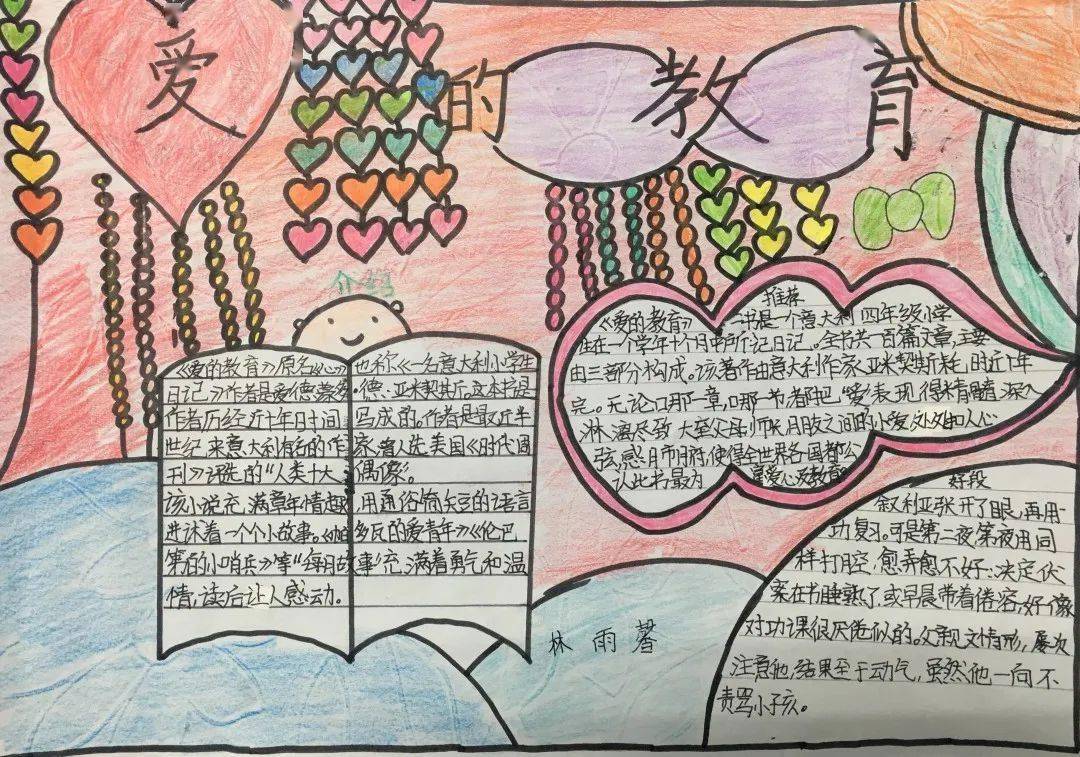 爱的教育
介绍
《爱的教育》原名《心》也称《一名意大利小学生
日记》作者是爱德蒙多·德·亚米契斯。这本书是
作者历经近十年时间写成的。作者是最近半
世纪来意大利有名的作家,曾入选美国《时代周
刊》评选的“人类十大偶像》。
该小说充满童年情趣,用通俗简短的语言
进述着一个个小故事。《帕多瓦的爱青年》《伦巴
第的小哨兵》等“每月故事”充满着勇气和温
情,读后让人感动。
推荐
《爱的教育》一书是一个意大利四年级小学
生在一个学年十个月中所记日记。全书共一百篇文章,主要
由三部分构成。该著作由意大利作家亚米契斯耗时近十年
完。无论哪一章,哪一节,都把“爱”表现得精髓深入
淋漓尽致 大至父母,师长,朋友之间的小爱处处扣人心
弦,感人肺腑,使得全世界各国都公
认此书最为 富爱心及教育
好段
叙利亚张开了眼,再用
功复习。可是第二夜第夜用同
样打盹,愈弄愈不好:决定伏
案在书睡熟了,或早晨带着倦容,好像
对功课很厌倦似的。父亲见文情形,屡次
注意他,结果至于动气,虽然他一向不
责骂小孩。
林雨馨